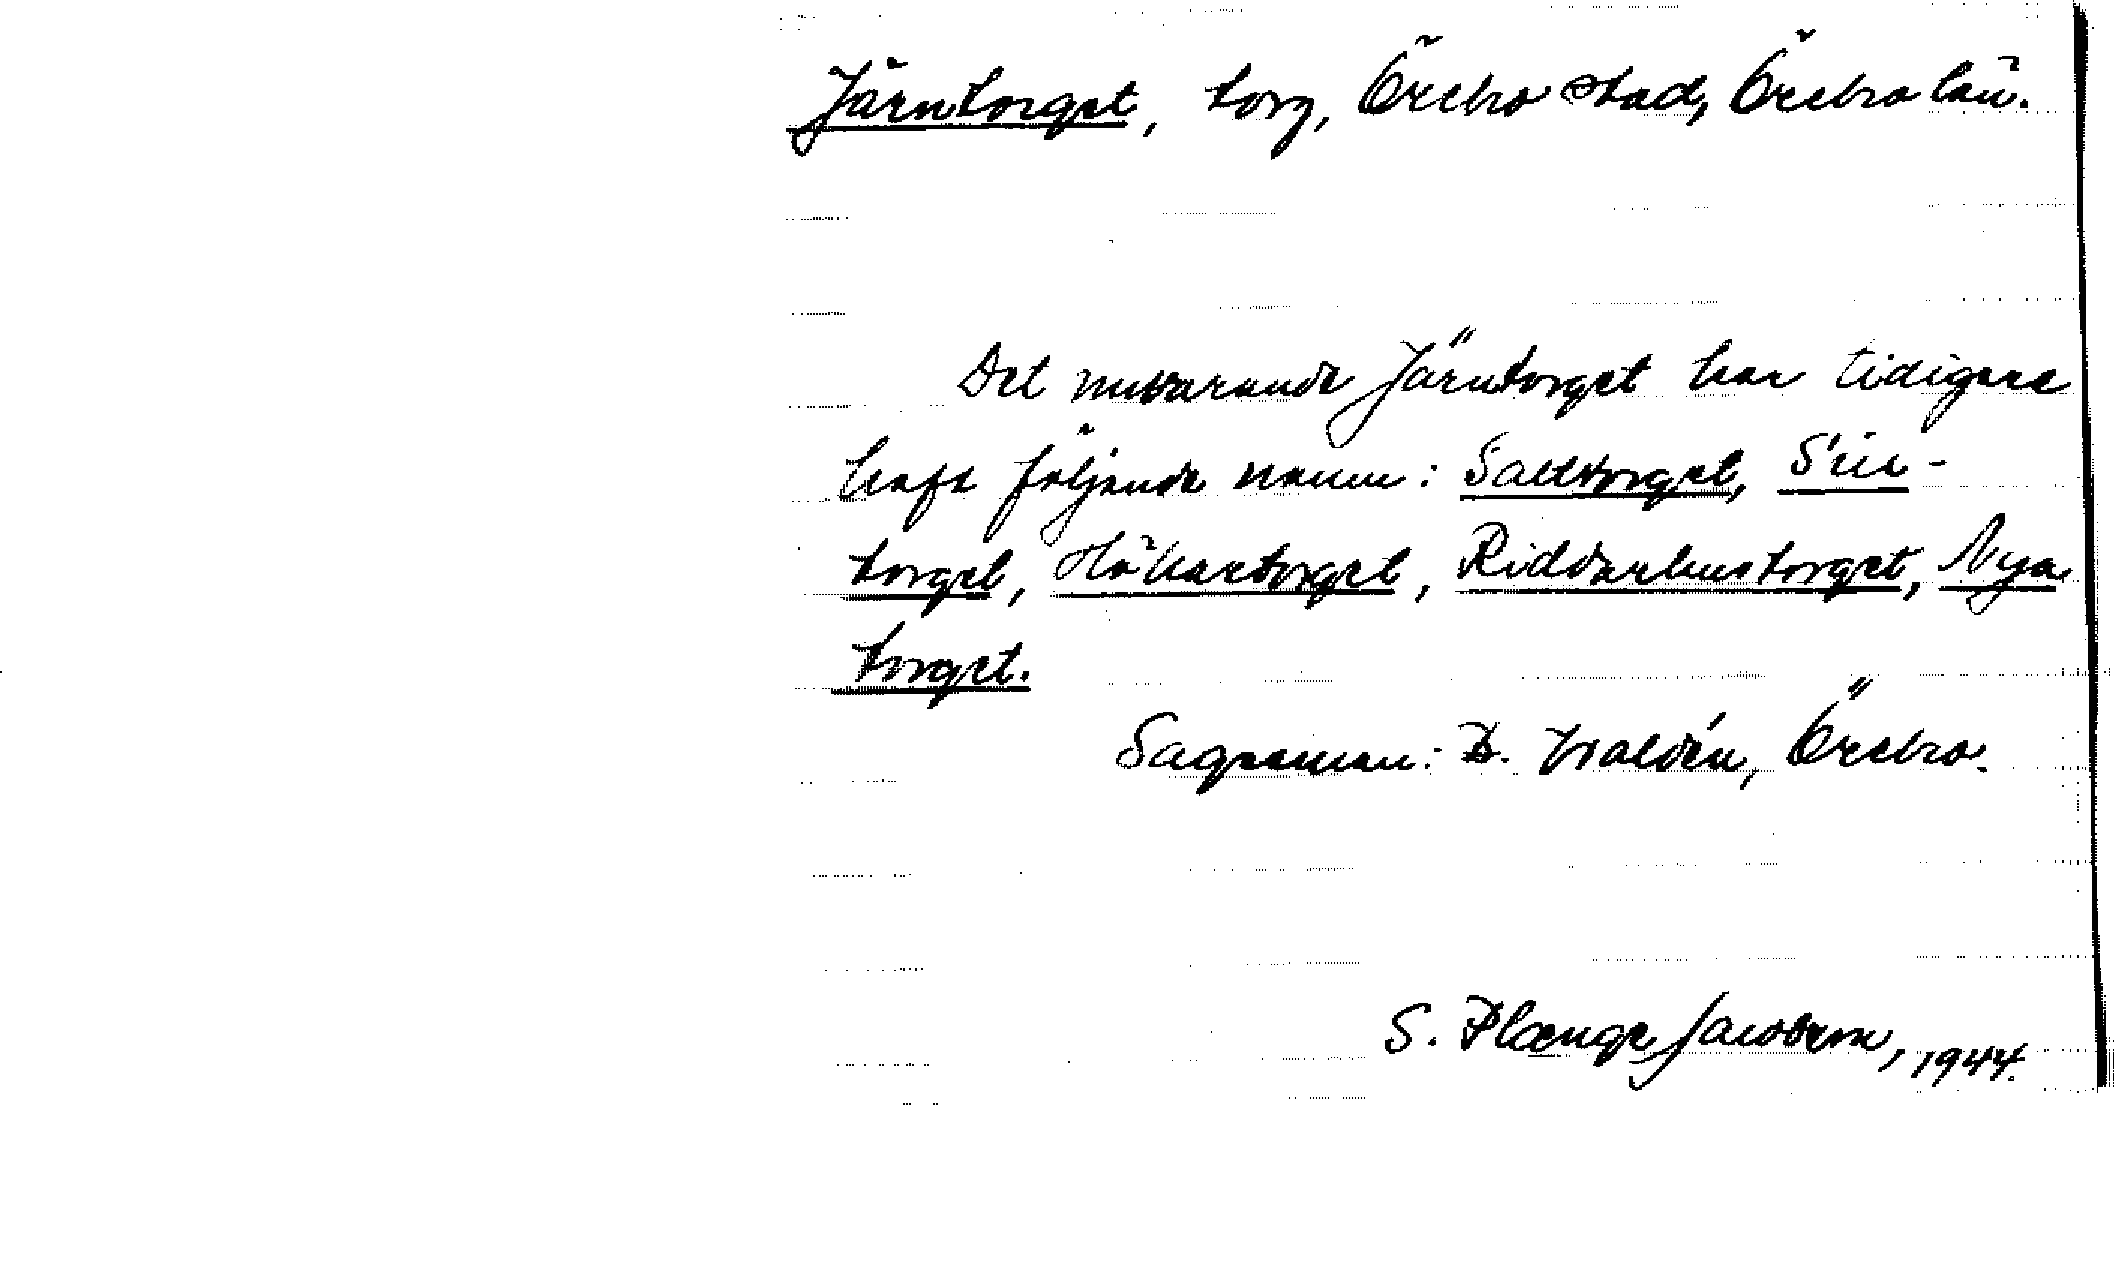 Järntorget, torg, Örebro stad, Örebro län.
Det nuvarande Järntorget har tidigare
haft följande namn: Salttorget, Sill-
torget, Hökaretorget, Riddarhustorget, Nya
torget.
Sagesman: B. Waldén, Örebro.
S. Plænge Jacobson, 1944.